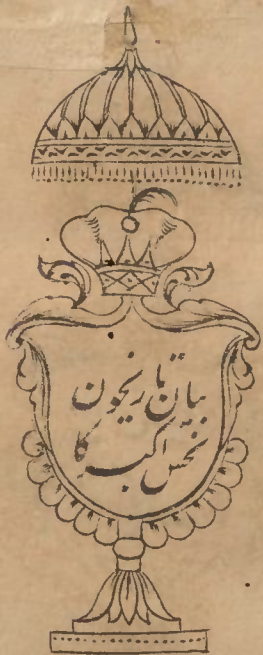 بیان تاریخون
نحس اکبر کا